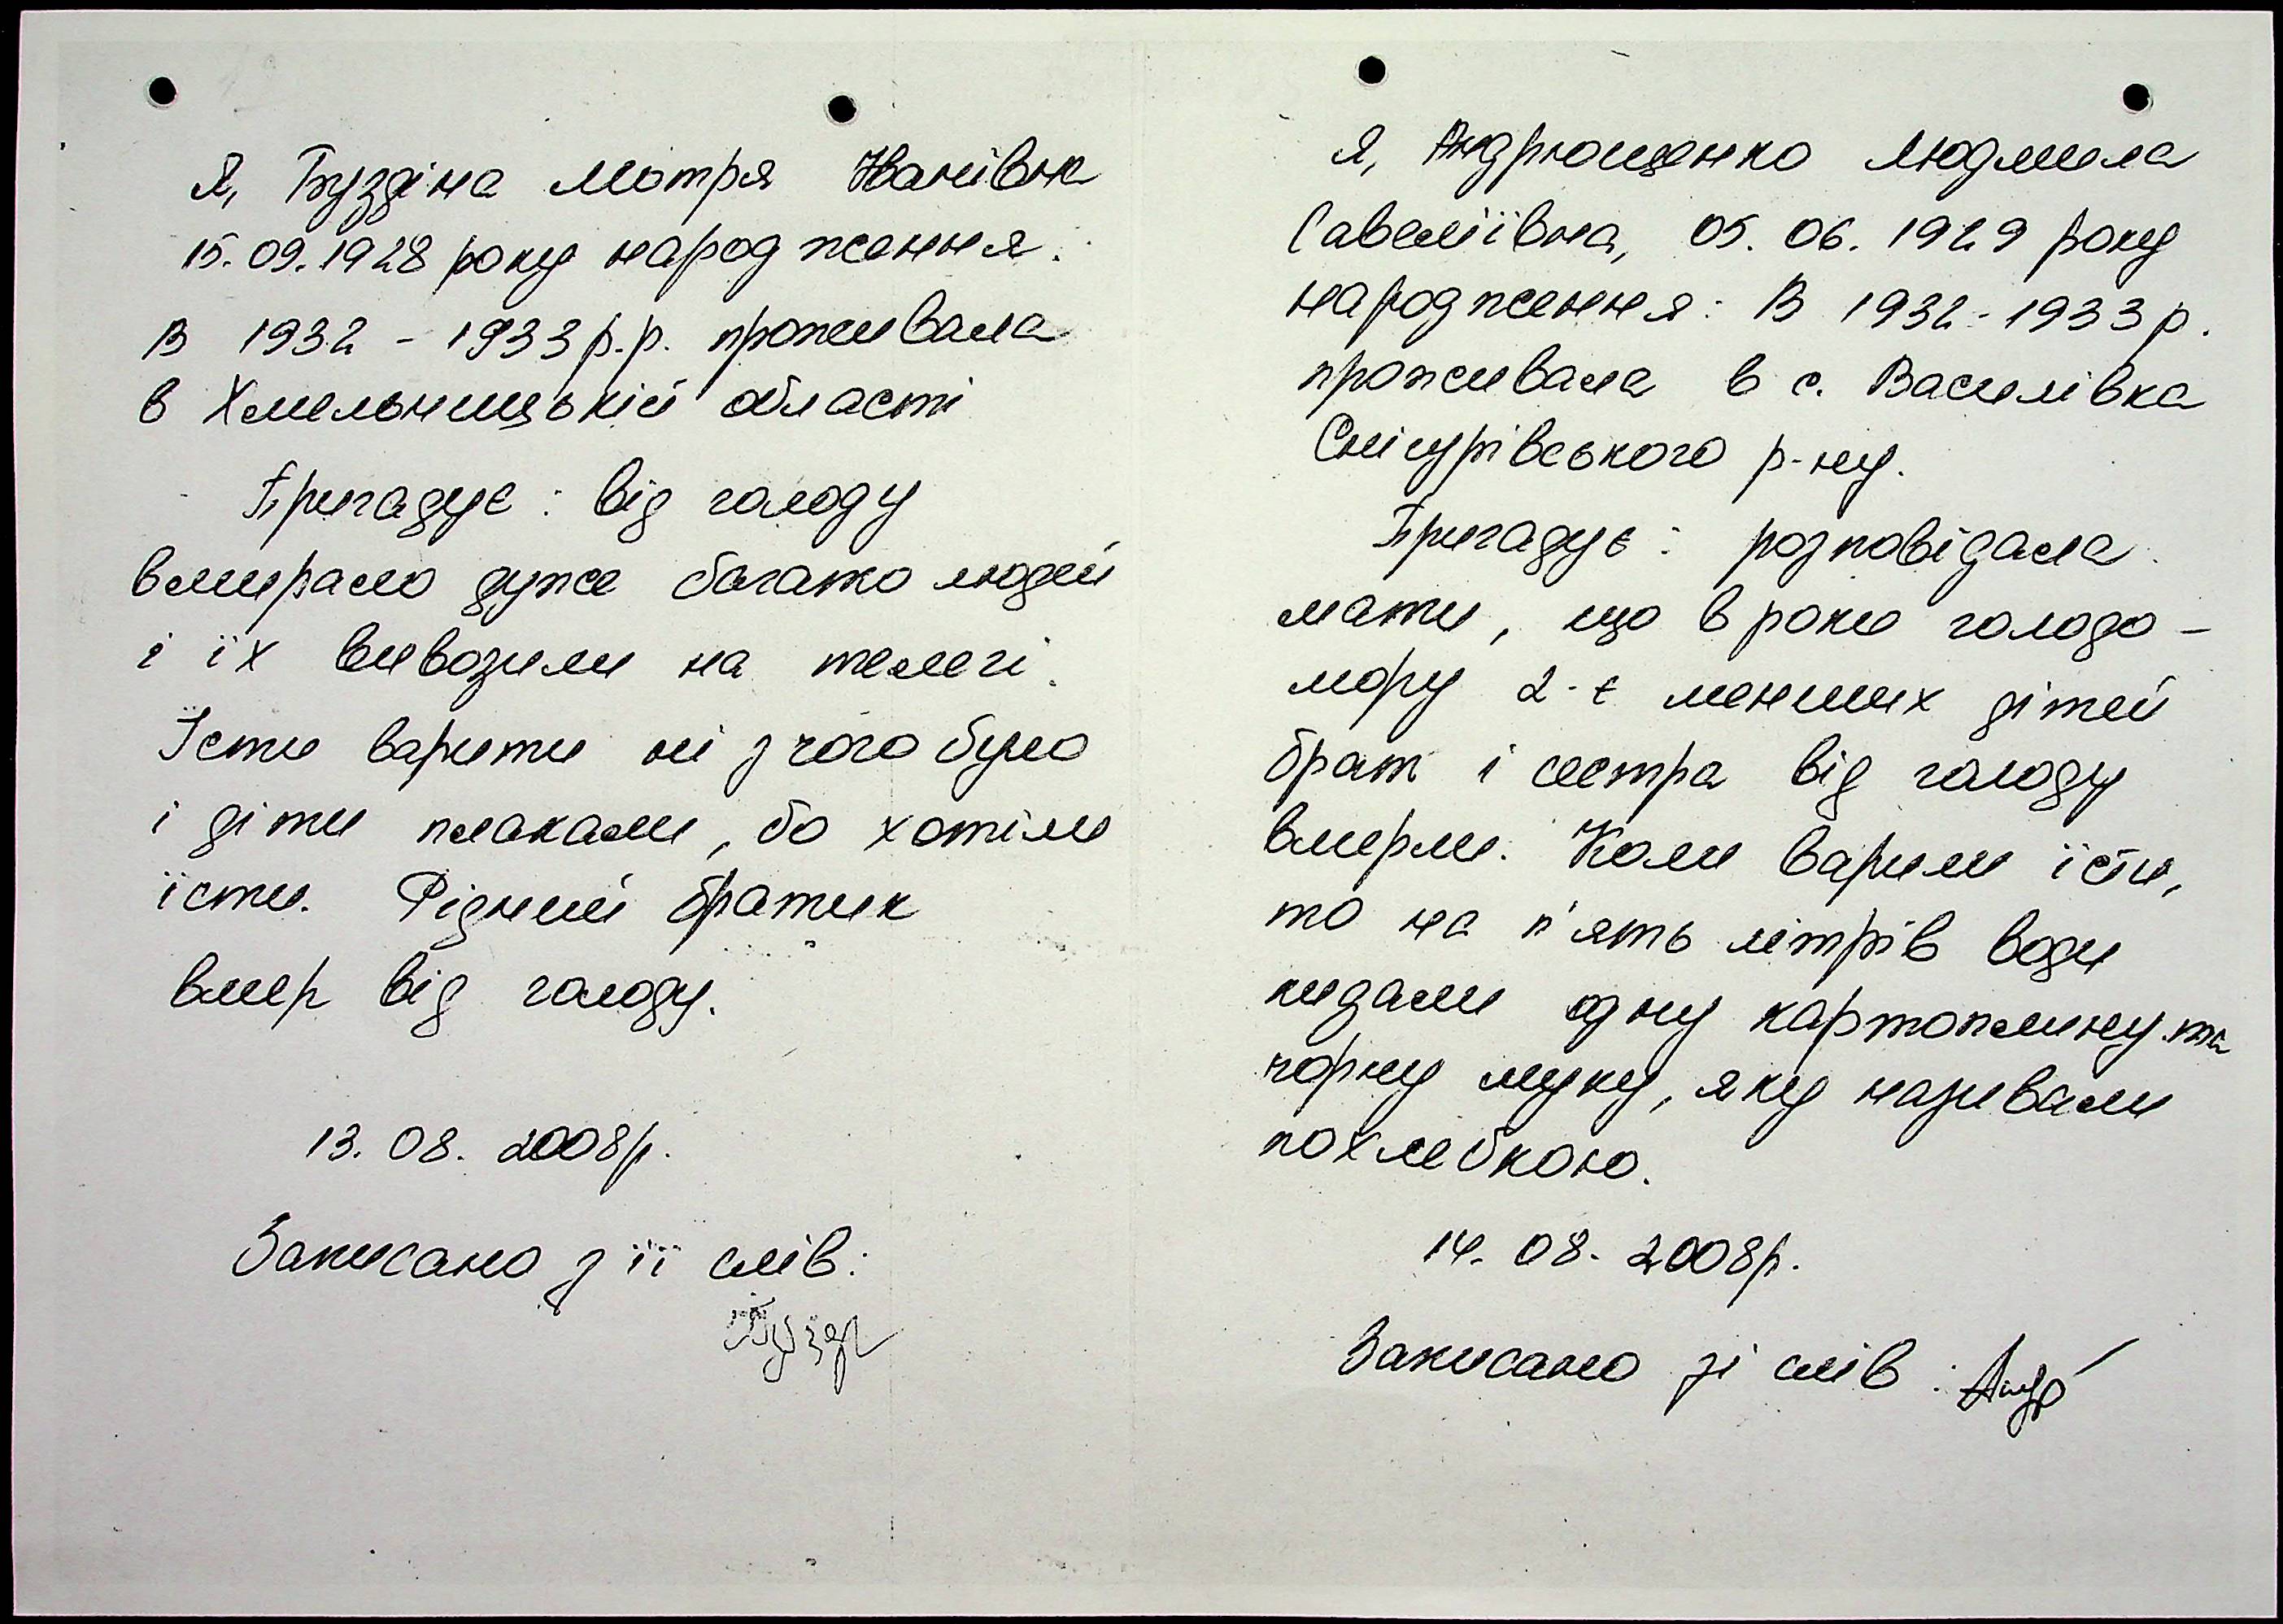 Я, Буздіна Мотря Іванівна
15.09.1928 року народження.
В 1932 - 1933 р.р. проживала
в Хмельницькій області
Пригадує: від голоду
вмирало дуже багато людей
і їх вивозили на телегі.
Їсти варити ні з чого було
і діти плакали, бо хотіли
їсти. Рідний братик
вмер від голоду.
13. 08. 2008р.
Записано з її слів:
Бузд
Я, Андрющенко Людмила
Савеліївна, 05. 06. 1929 року
народження: В 1932-1933 р.
проживала в с. Василівка
Снігурівського р-ну.
Пригадує: розповідала
мати, що в роки голодо-
мору 2-є менших дітей
брат і сестра від голоду
вмерли. Коли варили їсти,
то на п'ять літрів води
кидали одну картоплину та
чорну муку, яку називали
похлебкою.
14. 08. 2008р.
Записано зі слів: Андр